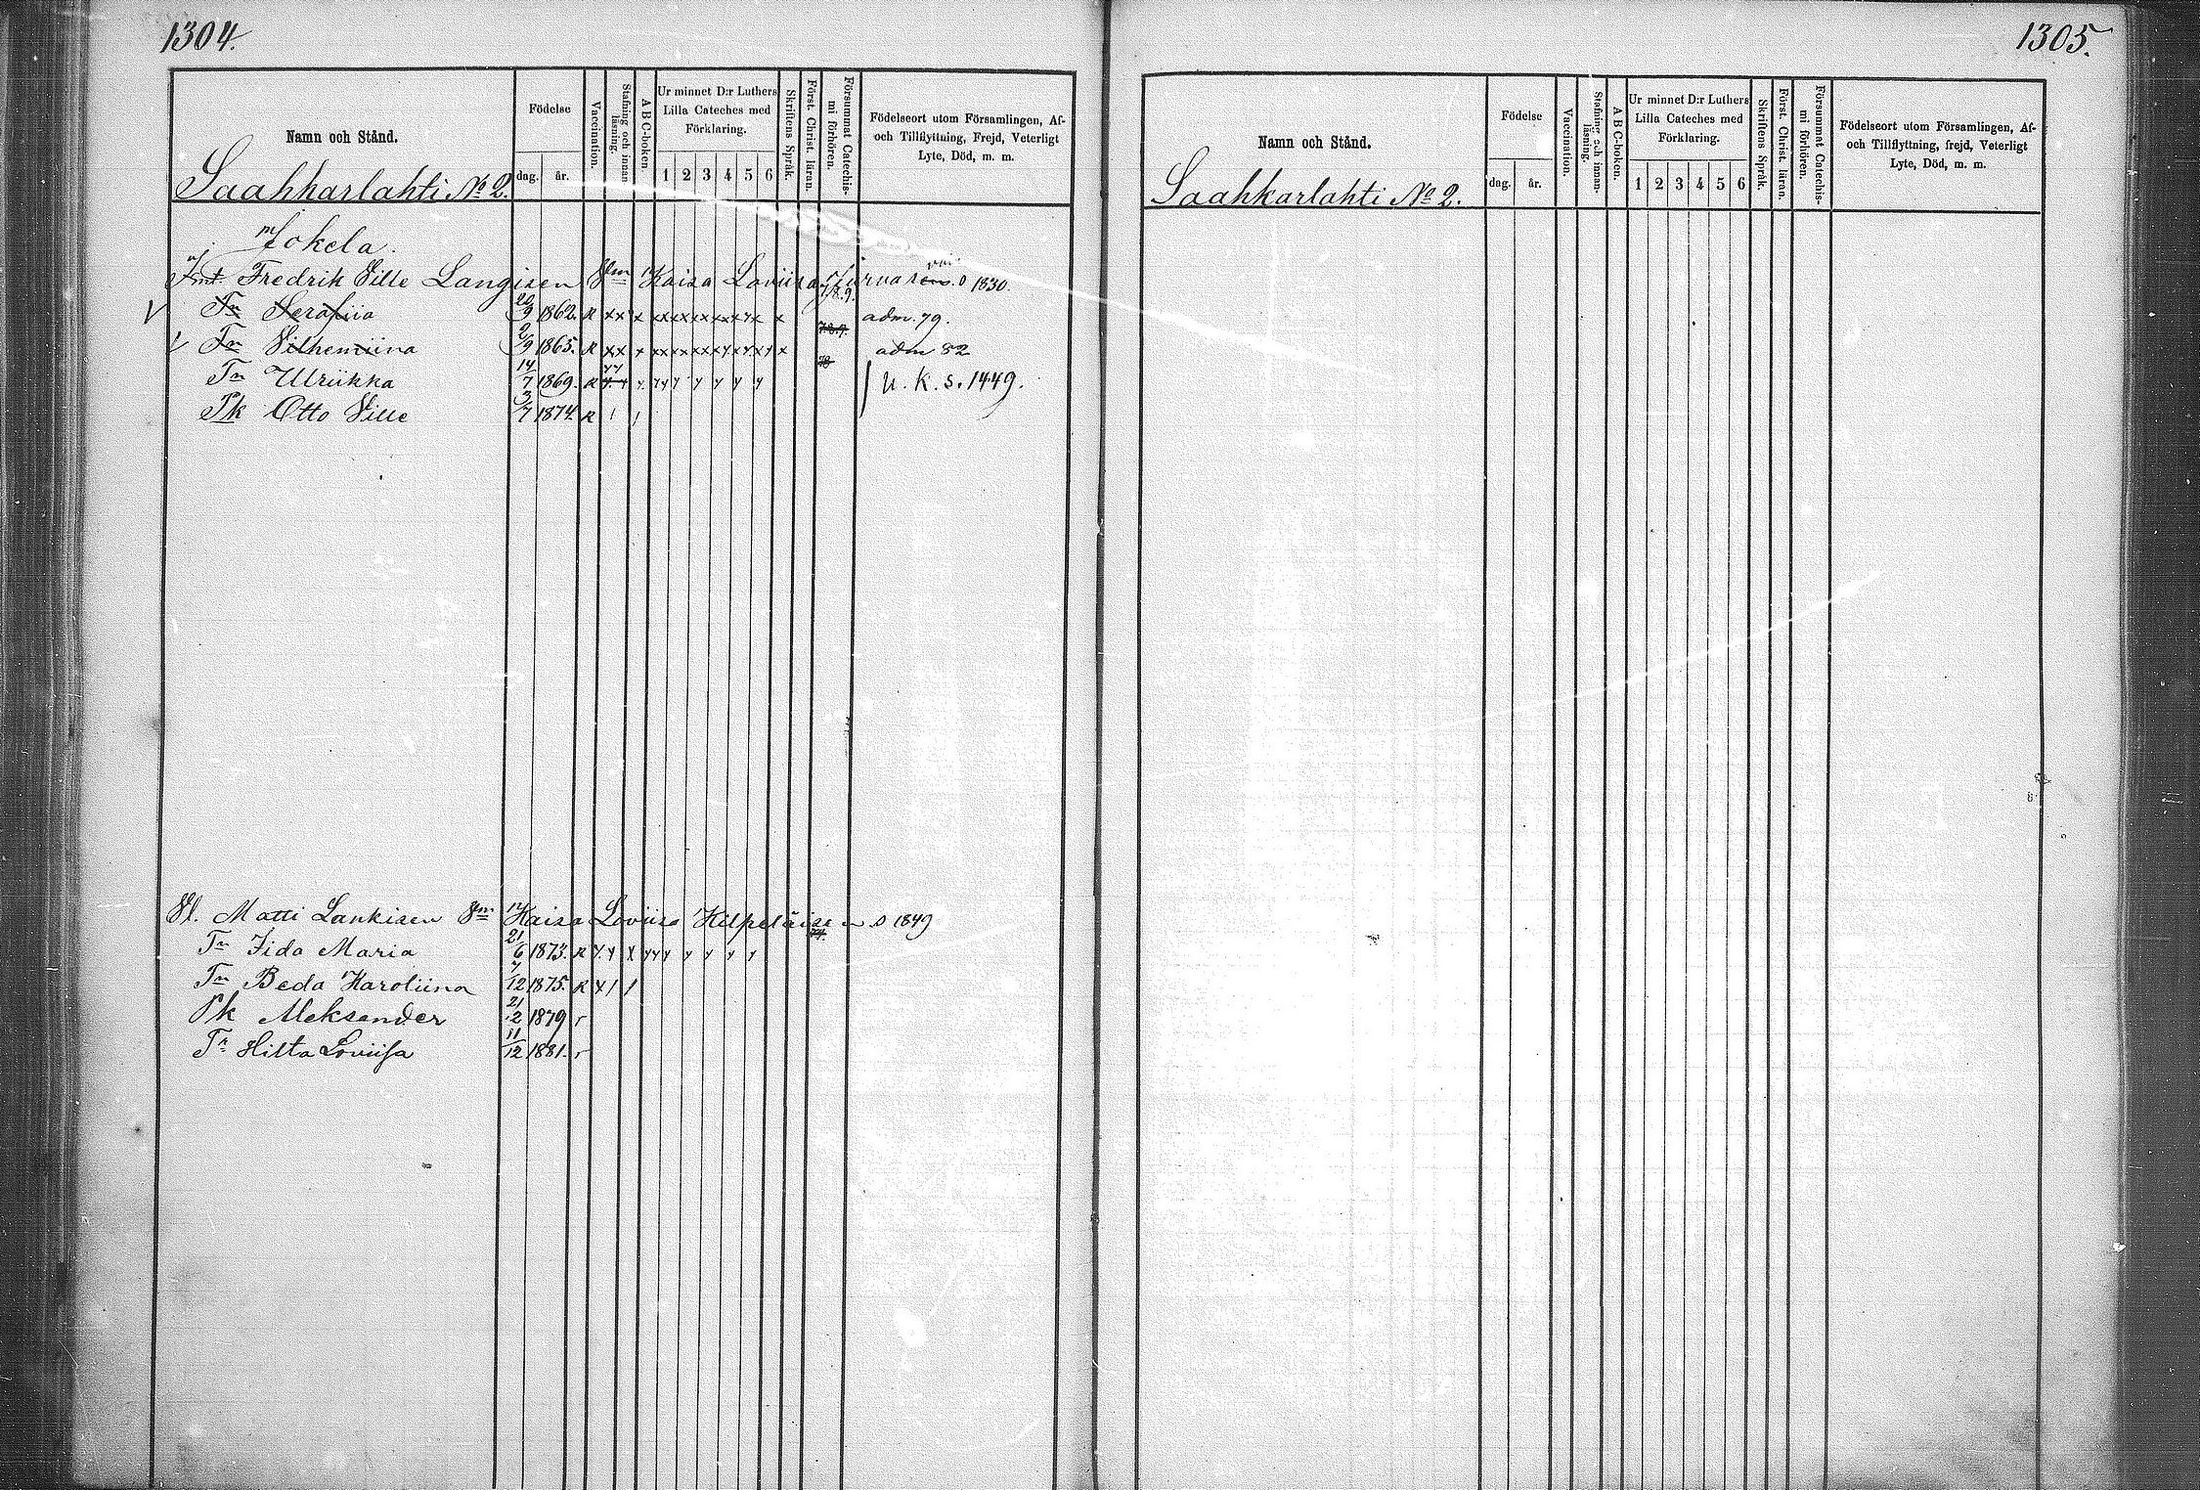 1304.
Namn och Stånd.
Födelse
dag.
år.
Vaccination.
Stafning och innan läsning.
ABC-boken.
Ur minnet D:r Luthers
Lilla Cateches med
Förklaring.
1 2 3 4 5 6
Skriftens Språk.
Först. Christ. läran.
Försummat Catechis-
mi förhören.
Födelseort utom Församlingen, Af-
och Tillflyttning, Frejd, Veterligt
Lyte, Död, m. m.
Saahkarlahti No 2.
Jokela.
Fredrik Ville Langisen Vm Kaisa Loviisa 1830.
Tr Serafiia 20/9 1862. R adm. 79.
Tr Vilhemiina 2/9 1865. R adm 82
Tr Ulriikka 14/7 1869. R
u. k. s. 1449.
Pk Otto Ville 3/7 1874. R
Vl. Matti Lankisen Vm Kaisa Loviisa Kilpeläisen s 1849
Tr Iida Maria 21/6 1873. R
Tr Beda Karoliina 7/12 1875. R
Pk Aleksander 21/12 1879 r
Tr Hilta Loviisa 11/12 1881. r
1305.
Namn och Stånd.
Födelse
dag.
år.
Vaccination.
Stafning och innan-
läsning.
ABC-boken.
Ur minnet D:r Luthers
Lilla Cateches med
Förklaring.
1 2 3 4 5 6
Skriftens Språk.
Först. Christ. läran.
Försummat Catechis-
mi förhören.
Födelseort utom Församlingen, Af-
och Tillflyttning, frejd, Veterligt
Lyte, Död, m. m.
Saahkarlahti No 2.